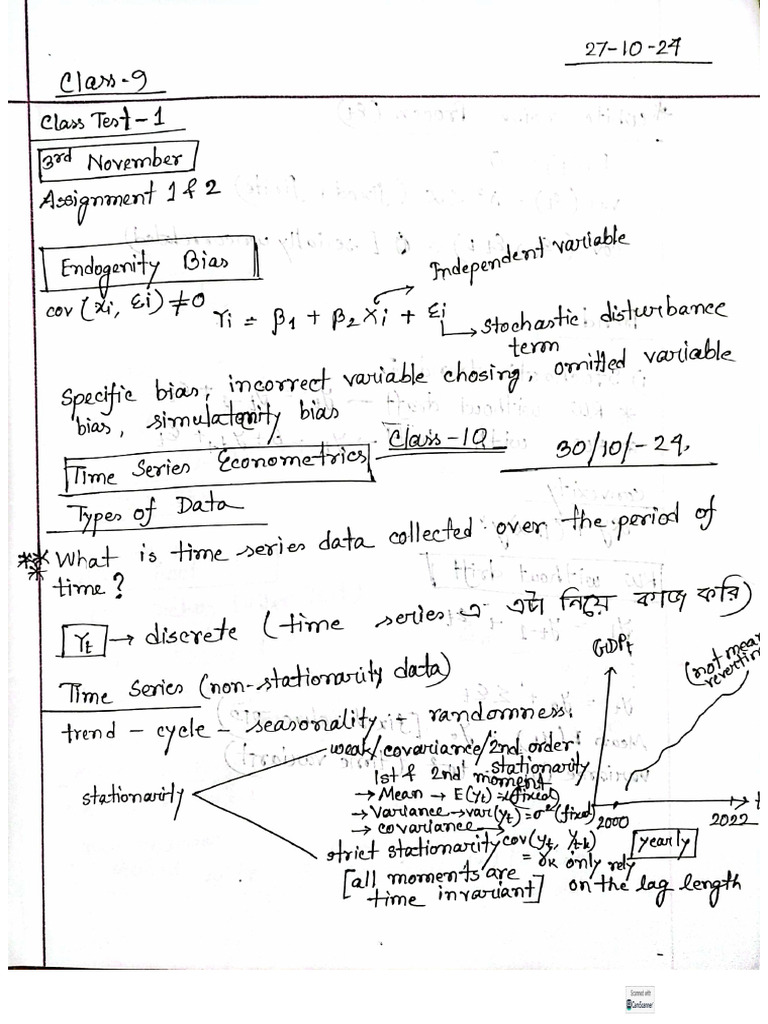 27-10-24
Class-9
Class Test-1
3rd November
Assignment 1 & 2
Endogenity Bias
Independent variable
cov (xi, εi) ≠ 0
Yi = β1 + β2 Xi + εi
Stochastic disturbance
term
Specific bias, incorrect variable chosing, omitted variable
bias, simulatenity bias
Class-10
30/10/-24.
Time Series Econometrics
Types of Data
** What is time series data collected over the period of
* time?
Yt → discrete (time series এ এটা নিয়ে কাজ করি)
GDPt
(not mean
reverting
Time Series (non-stationarity data)
trend - cycle - seasonality + randomness.
weak/covariance/2nd order
stationarity
1st & 2nd moment
stationarity
→ Mean → E(yt) = μ(fixed)
→ Variance → var(yt) = σ² (fixed)
→ covariance →
cov(yt, yt-k)
= γk only rely
on the lag length
strict stationarity
[all moments are
time invariant]
2000
2022
t
yearly
Scanned with
CamScanner